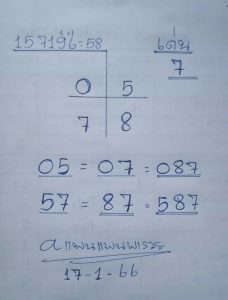 157196=58
เด่น
7
0 5
7 8
05 = 07 = 087
57 = 87 = 587
17-1-66